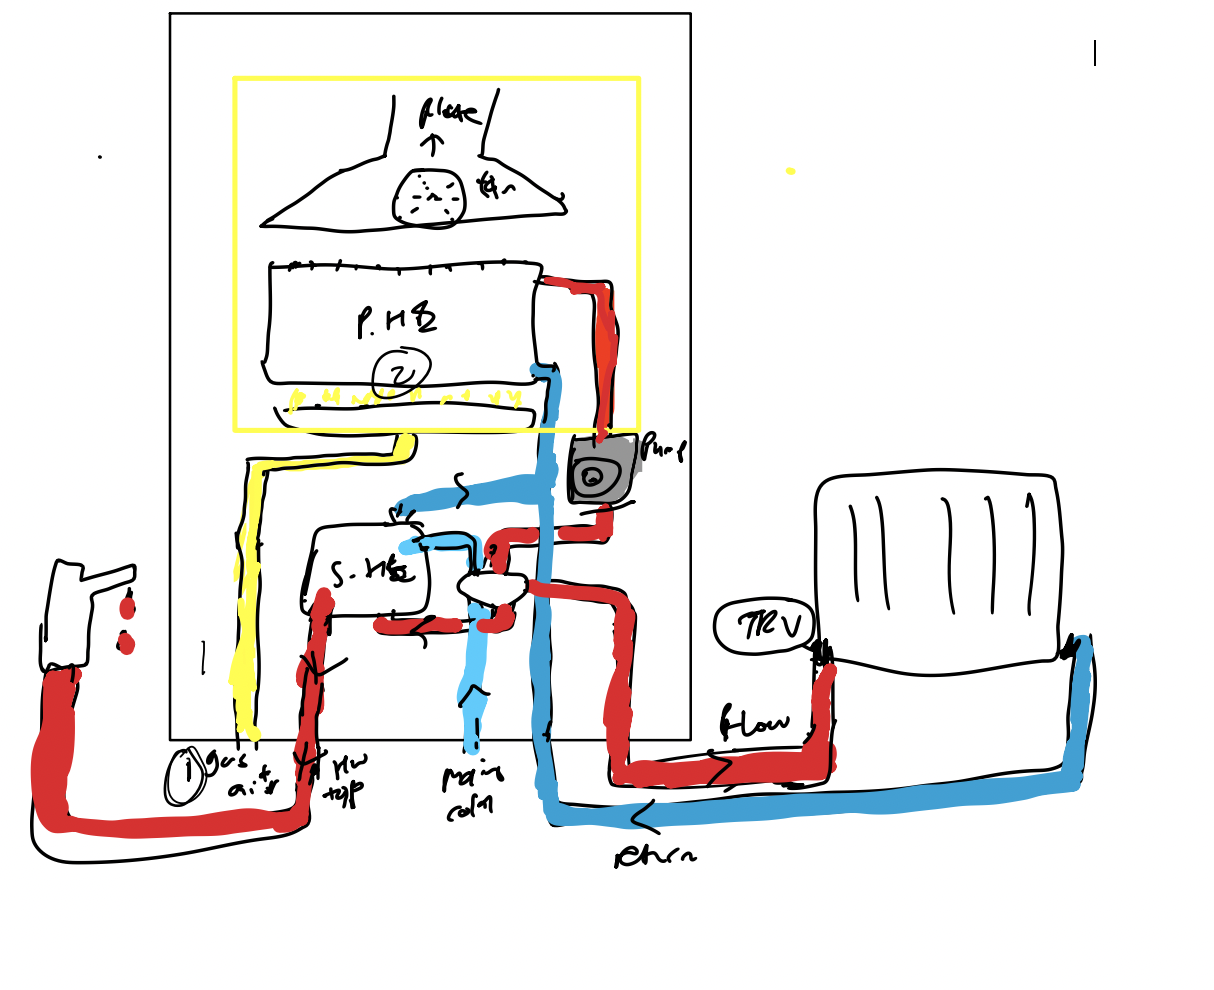 fan
P. HE
2
Pump
S. HE
TRV
Flow
1
gas
air
HW
tap
main
cold
return